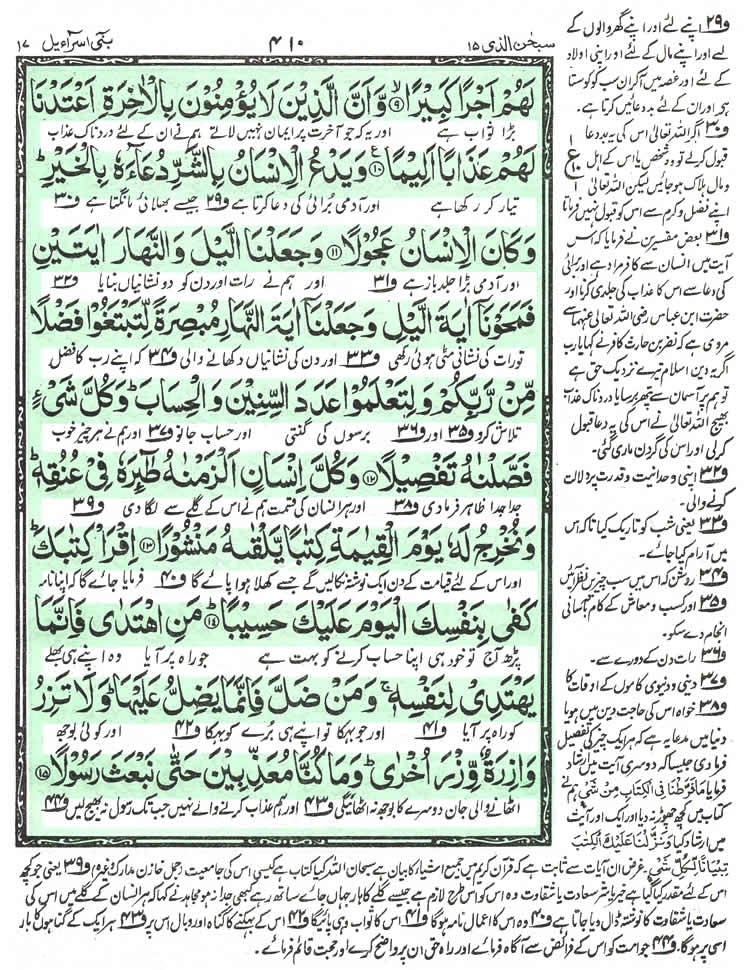 سبحٰن الذی ۱۵
۴۱۰
بنی اسرآءیل ۱۷
لَهُمْ اَجْرًا كَبِيْرًا ۙ﴿۹﴾ وَّاَنَّ الَّذِيْنَ لَا يُؤْمِنُوْنَ بِالْاٰخِرَةِ اَعْتَدْنَا
بڑا ثواب ہے اور یہ کہ جو آخرت پر ایمان نہیں لاتے ہم نے ان کے لئے دردناک عذاب
لَهُمْ عَذَابًا اَلِيْمًا ﴿۱۰﴾ وَيَدْعُ الْاِنْسَانُ بِالشَّرِّ دُعَآءَهٗ بِالْخَيْرِ ؕ
تیار کر رکھا ہے اور آدمی برائی کی دعا کرتا ہے ف۲۹ جیسے بھلائی مانگتا ہے ف۳۰
وَكَانَ الْاِنْسَانُ عَجُوْلًا ﴿۱۱﴾ وَجَعَلْنَا الَّيْلَ وَالنَّهَارَ اٰيَتَيْنِ
اور آدمی بڑا جلد باز ہے ف۳۱ اور ہم نے رات اور دن کو دو نشانیاں بنایا ف۳۲
فَمَحَوْنَاۤ اٰيَةَ الَّيْلِ وَجَعَلْنَاۤ اٰيَةَ النَّهَارِ مُبْصِرَةً لِّتَبْتَغُوْا فَضْلًا
تو رات کی نشانی مٹی ہوئی رکھی ف۳۳ اور دن کی نشانیاں دکھانے والی ف۳۴ کہ اپنے رب کا فضل
مِّنْ رَّبِّكُمْ وَلِتَعْلَمُوْا عَدَدَ السِّنِيْنَ وَالْحِسَابَ ؕ وَكُلَّ شَيْءٍ
تلاش کرو ف۳۵ اور ف۳۶ برسوں کی گنتی اور حساب جانو ف۳۷ اور ہم نے ہر چیز خوب
فَصَّلْنٰهُ تَفْصِيْلًا ﴿۱۲﴾ وَكُلَّ اِنْسَانٍ اَلْزَمْنٰهُ طٰٓئِرَهٗ فِيْ عُنُقِهٖ ؕ
جدا جدا ظاہر فرما دی ف۳۸ اور ہر انسان کی قسمت ہم نے اس کے گلے سے لگا دی ف۳۹
وَنُخْرِجُ لَهٗ يَوْمَ الْقِيٰمَةِ كِتٰبًا يَّلْقٰىهُ مَنْشُوْرًا ﴿۱۳﴾ اِقْرَاْ كِتٰبَكَ ؕ
اور اس کے لئے قیامت کے دن ایک نوشتہ نکالیں گے جسے کھلا ہوا پائے گا ف۴۰ فرمایا جائے گا کہ اپنا نامہ
كَفٰى بِنَفْسِكَ الْيَوْمَ عَلَيْكَ حَسِيْبًا ؕ﴿۱۴﴾ مَنِ اهْتَدٰى فَاِنَّمَا
پڑھ آج تو خود ہی اپنا حساب کرنے کو بہت ہے جو راہ پر آیا وہ اپنے ہی بھلے
يَهْتَدِيْ لِنَفْسِهٖ ۚ وَمَنْ ضَلَّ فَاِنَّمَا يَضِلُّ عَلَيْهَا ؕ وَلَا تَزِرُ
کو راہ پر آیا ف۴۱ اور جو بہکا تو اپنے ہی برے کو بہکا ف۴۲ اور کوئی بوجھ
وَازِرَةٌ وِّزْرَ اُخْرٰى ؕ وَمَا كُنَّا مُعَذِّبِيْنَ حَتّٰى نَبْعَثَ رَسُوْلًا ﴿۱۵﴾
اٹھانے والی جان دوسرے کا بوجھ نہ اٹھائیگی ف۴۳ اور ہم عذاب کرنے والے نہیں جب تک رسول نہ بھیج لیں ف۴۴
ف۲۹ اپنے لئے اور اپنے گھر والوں کے
لیے اور اپنے مال کے لئے اور اپنی اولاد
کے لئے اور غصہ میں آکر ان سب کو کوستا
ہے اور ان کے لئے بددعائیں کرتا ہے۔
ف۳۰ اگر اللہ تعالیٰ اس کی یہ بددعا
قبول کرلے تو وہ شخص یا اس کے اہل
و مال ہلاک ہو جائیں لیکن اللہ تعالیٰ
اپنے فضل و کرم سے اس کو قبول نہیں فرماتا
ف۳۱ بعض مفسرین نے فرمایا کہ اس
آیت میں انسان سے کافر مراد ہے اور برائی
کی دعا سے اس کا عذاب کی جلدی کرنا اور
حضرت ابن عباس رضی اللہ تعالیٰ عنہما سے
مروی ہے کہ نضر بن حارث کافر نے کہا یارب
اگر یہ دین اسلام تیرے نزدیک حق ہے
تو ہم پر آسمان سے پتھر برسا یا دردناک عذاب
بھیج اللہ تعالیٰ نے اس کی یہ دعا قبول
کرلی اور اس کی گردن ماری گئی۔
ف۳۲ اپنی وحدانیت و قدرت پر دلالت
کرنے والی۔
ف۳۳ یعنی شب کو تاریک کیا تاکہ اس
میں آرام کیا جائے۔
ف۳۴ روشن کہ اس میں سب چیزیں نظر آئیں
ف۳۵ اور کسب و معاش کے کام بآسانی
انجام دے سکو۔
ف۳۶ رات دن کے دورے سے۔
ف۳۷ دینی و دنیوی کاموں کے اوقات کا
ف۳۸ خواہ اس کی حاجت دین میں ہو یا
دنیا میں مدعا یہ ہے کہ ہر ایک چیز کی تفصیل
فرما دی جیسا کہ دوسری آیت میں ارشاد
فرمایا مَا فَرَّطْنَا فِی الْكِتٰبِ مِنْ شَيْءٍ ہم نے
کتاب میں کچھ چھوڑ نہ دیا اور ایک اور آیت
میں ارشاد کیا وَنَزَّلْنَا عَلَيْكَ الْكِتٰبَ
تِبْيَانًا لِّكُلِّ شَيْءٍ غرض ان آیات سے ثابت ہے کہ قرآن کریم میں جمیع اشیاء کا بیان ہے سبحان اللہ کیا کتاب ہے کیسی اس کی جامعیت (جمل خازن مدارک وغیرہ) ف۳۹ یعنی جو کچھ
اس کے لئے مقدر کیا گیا ہے خیر یا شر سعادت یا شقاوت وہ اس کو اس طرح لازم ہے جیسے گلے کا ہار جہاں جائے ساتھ رہے کبھی جدا نہ ہو مجاہد نے کہا کہ ہر انسان کے گلے میں اس کی
سعادت یا شقاوت کا نوشتہ ڈال دیا جاتا ہے ف۴۰ وہ اس کا اعمال نامہ ہوگا ف۴۱ اس کا ثواب وہی پائیگا ف۴۲ اس کے بہکنے کا گناہ اور وبال اس پر ف۴۳ ہر ایک کے گناہوں کا بار
اسی پر ہوگا۔ ف۴۴ جو امت کو اس کے فرائض سے آگاہ فرمائے اور راہ حق ان پر واضح کرے اور حجت قائم فرمائے۔